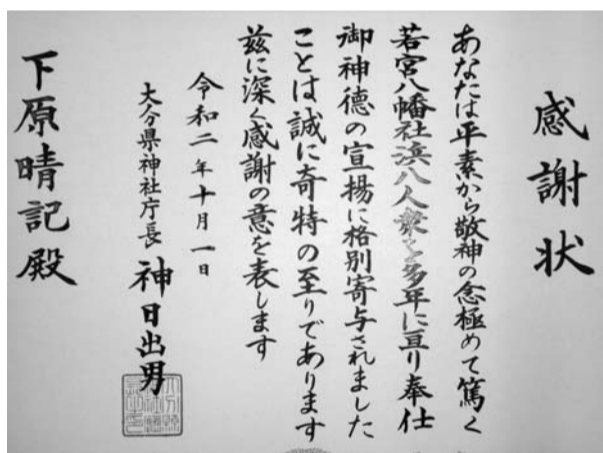 感謝状
あなたは平素から敬神の念極めて篤く
若宮八幡社浜八人衆を多年に亘り奉仕
御神徳の宣揚に格別寄与されました
ことは誠に奇特の至りであります
茲に深く感謝の意を表します
令和二年十月一日
大分県神社庁長 神日出男
下原晴記殿